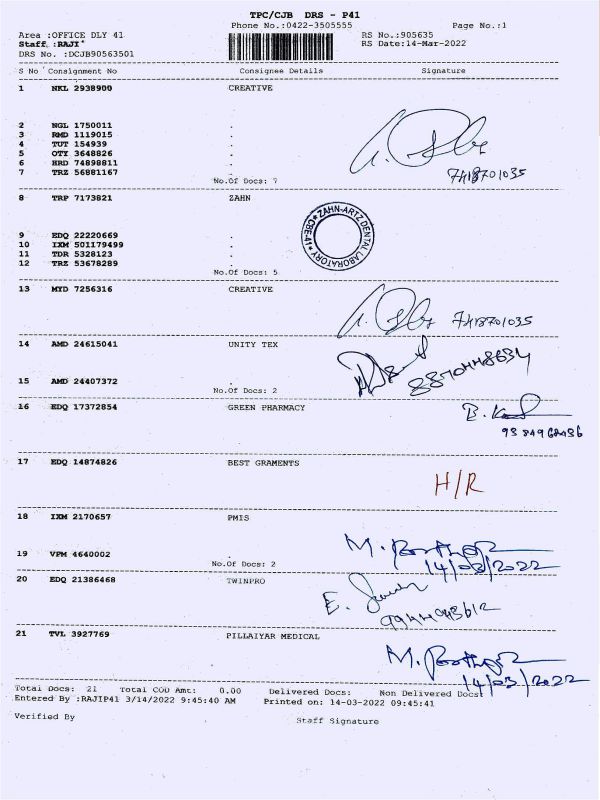 TPC/CJB DRS - P41
Phone No.:0422-3505555 Page No.:1
Area :OFFICE DLY 41 RS No.:905635
Staff :RAJI RS Date:14-Mar-2022
DRS No. :DCJB90563501
S No Consignment No Consignee Details Signature
1 NKL 2938900 CREATIVE
2 NGL 1750011 .
3 RMD 1119015 .
4 TUT 154939 .
5 OTY 3648826 .
6 HRD 74898811 .
7 TRZ 56881167 .
7418701035
No.Of Docs: 7
8 TRP 7173821 ZAHN
ZAHN-ARTZ DENTAL LABORATORY CBE-41
9 EDQ 22220669 .
10 IXM 501179499 .
11 TDR 5328123 .
12 TRZ 53678289 .
No.Of Docs: 5
13 MYD 7256316 CREATIVE
7418701035
14 AMD 24615041 UNITY TEX
8870448634
15 AMD 24407372 .
No.Of Docs: 2
16 EDQ 17372854 GREEN PHARMACY
17 EDQ 14874826 BEST GRAMENTS
H/R
18 IXM 2170657 PMIS
19 VPM 4640002 .
14/03/2022
No.Of Docs: 2
20 EDQ 21386468 TWINPRO
21 TVL 3927769 PILLAIYAR MEDICAL
14/03/2022
Total Docs: 21 Total COD Amt: 0.00 Delivered Docs: Non Delivered Docs:
Entered By :RAJIP41 3/14/2022 9:45:40 AM Printed on: 14-03-2022 09:45:41
Verified By Staff Signature